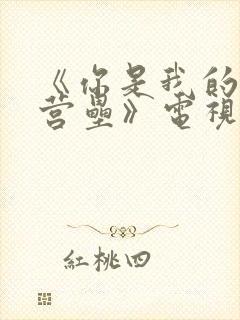 《你是我的
营壘》電視
紅桃四